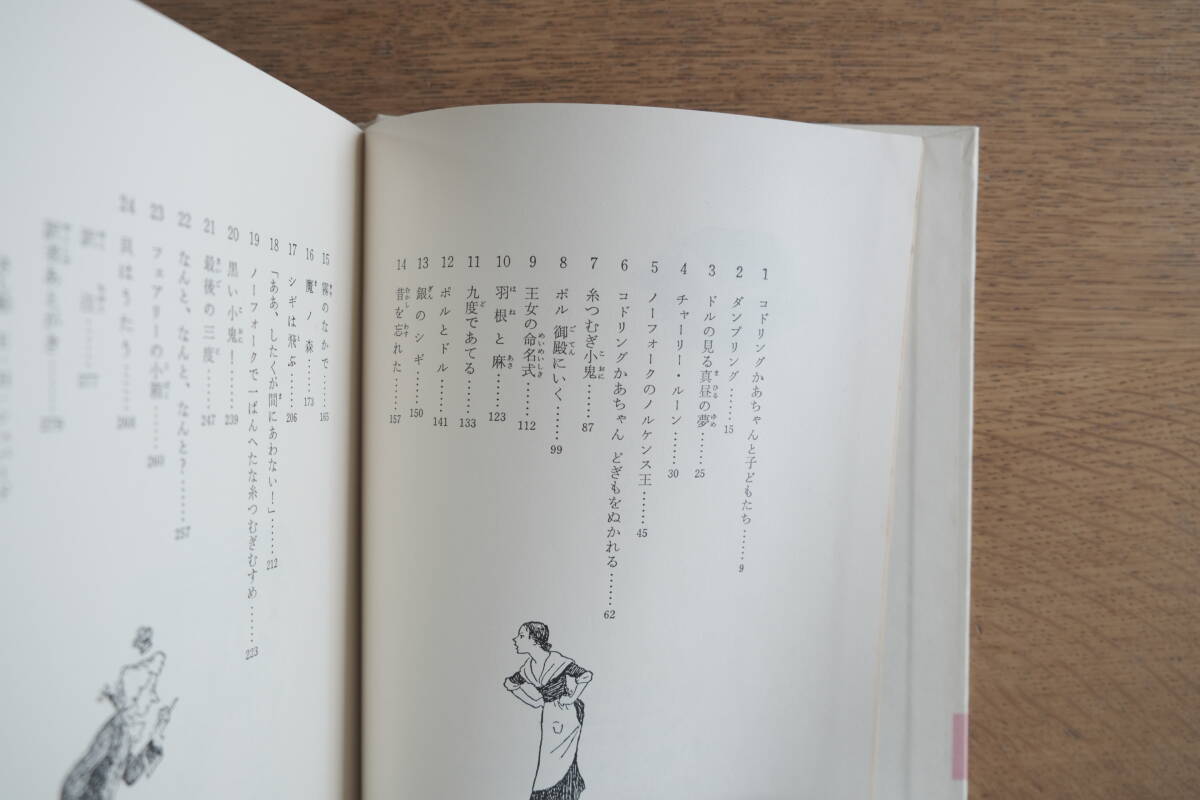 1 コドリングかあちゃんと子どもたち……9
2 ダンプリング……15
3 ドルの見る真昼の夢……25
4 チャーリー・ルーン……30
5 ノーフォークのノルケンス王……45
6 コドリングかあちゃん どぎもをぬかれる……62
7 糸つむぎ小鬼……87
8 ポル 御殿にいく……99
9 王女の命名式……112
10 羽根と麻……123
11 九度であてる……133
12 ポルとドル……141
13 銀のシギ……150
14 昔を忘れた……157
15 霧のなかで……165
16 魔ノ森……173
17 シギは飛ぶ……206
18 「ああ、したくが間にあわない！」……212
19 ノーフォークで一ばんへたな糸つむぎむすめ……223
20 黒い小鬼！……239
21 最後の三度……247
22 なんと、なんと、なんと？……257
23 フェアリーの小箱……260
24 貝はうたう……268
訳 注……277
訳者あとがき……279